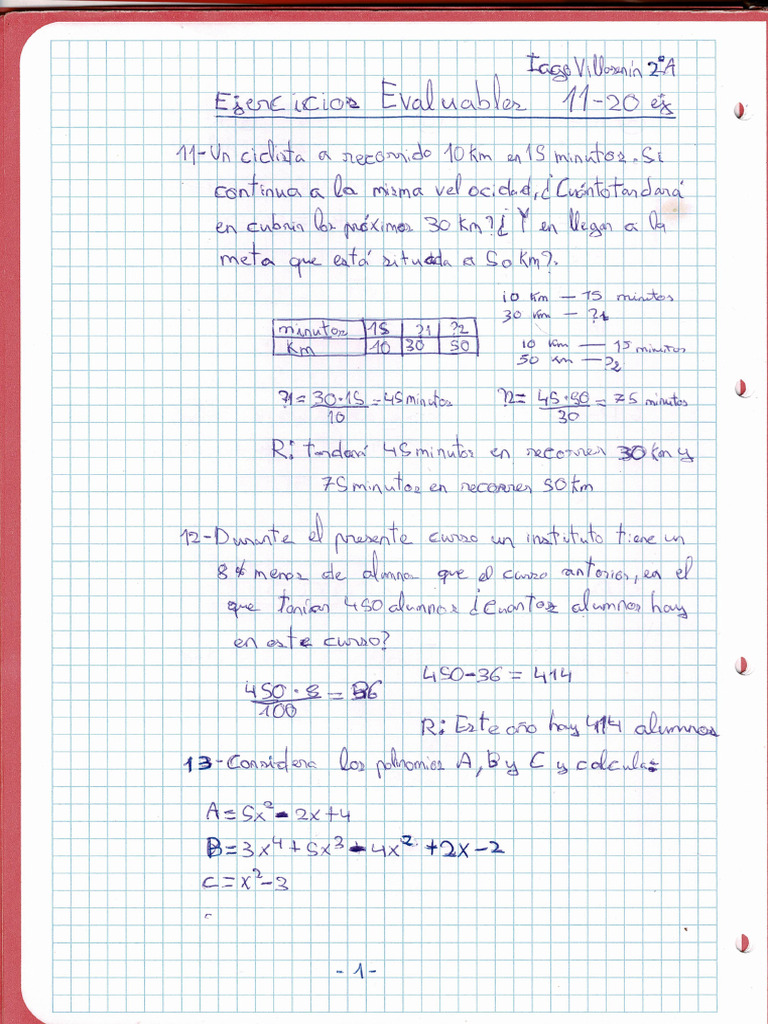 Iago Villarenín 2ºA
Ejercicios Evaluables 11-20 ej
11-Un ciclista a recorrido 10Km en 15 minutos. Si
continua a la misma velocidad, ¿Cuánto tardará
en cubrir los próximos 30 Km? ¿Y en llegar a la
meta que está situada a 50 Km?.
10 Km — 15 minutos
30 Km — ?1
minutos 15 ?1 ?2
Km 10 30 50
10 Km — 15 minutos
50 Km — ?2
?1 = 30·15 / 10 = 45 minutos
?2 = 45·50 / 30 = 75 minutos
R: tardará 45 minutos en recorrer 30 Km y
75 minutos en recorrer 50 Km
12-Durante el presente curso un instituto tiene un
8% menos de alumnos que el curso anterior, en el
que tenían 450 alumnos ¿Cuantos alumnos hay
en este curso?
450·8 / 100 = 36
450-36 = 414
R: Este año hay 414 alumnos
13-Considera los polinomios A, B y C y calcula:
A=5x²-2x+4
B=3x⁴+5x³-4x²+2x-2
C=x²-3
-1-